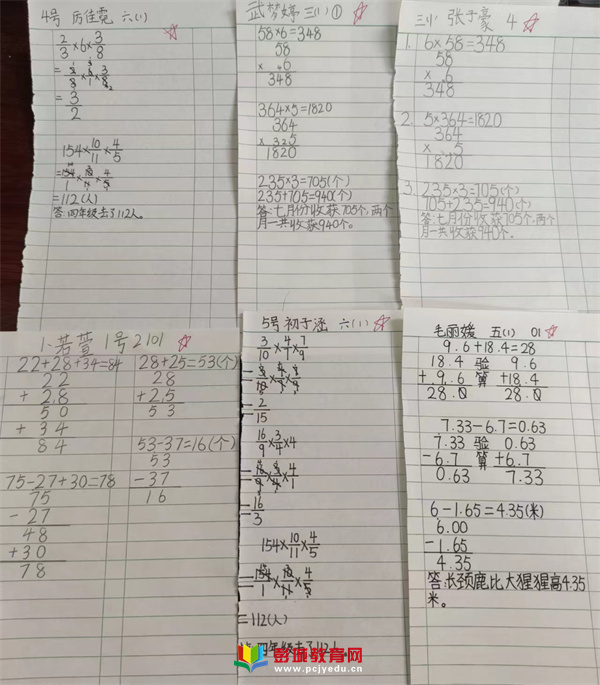 4号 厉佳霓 六(1)
2/3×6×3/8
=2/3×6/1×3/8
=3/2
154×10/11×4/5
=154/1×10/11×4/5
=112(人)
答:四年级去了112人。
武梦婷 三(1) ①
58×6=348
58
× 6
348
364×5=1820
364
× 3 2 5
1820
235×3=705(个)
235+705=940(个)
答:七月份收获705个,两个
月一共收获940个。
三(1) 张子豪 4
1. 6×58=348
58
× 6
348
2. 5×364=1820
364
× 5
1820
3. 235×3=705(个)
705+235=940(个)
答:七月份收获705个,两个
月一共收获940个。
1号 2101
22+28+34=84
22
+ 28
50
+ 34
84
75-27+30=78
75
- 27
48
+30
78
28+25=53(个)
28
+ 25
53
53-37=16(个)
53
-37
16
5号 初子涵 六(1)
3/10×4/7×7/9
=3/10×4/7×7/9
=2/15
16/9×3/4×4
=16/9×3/4×4/1
=16/3
154×10/11×4/5
=154/1×10/11×4/5
=112(人)
四年级去了112人
毛雨媛 五(1) 01
9.6+18.4=28
18.4 验 9.6
+ 9.6 算 +18.4
28.0 28.0
7.33-6.7=0.63
7.33 验 0.63
-6.7 算 +6.7
0.63 7.33
6-1.65=4.35(米)
6.00
-1.65
4.35
答:长颈鹿比大猩猩高4.35
米。
彭城教育网
www.pcjyedu.com